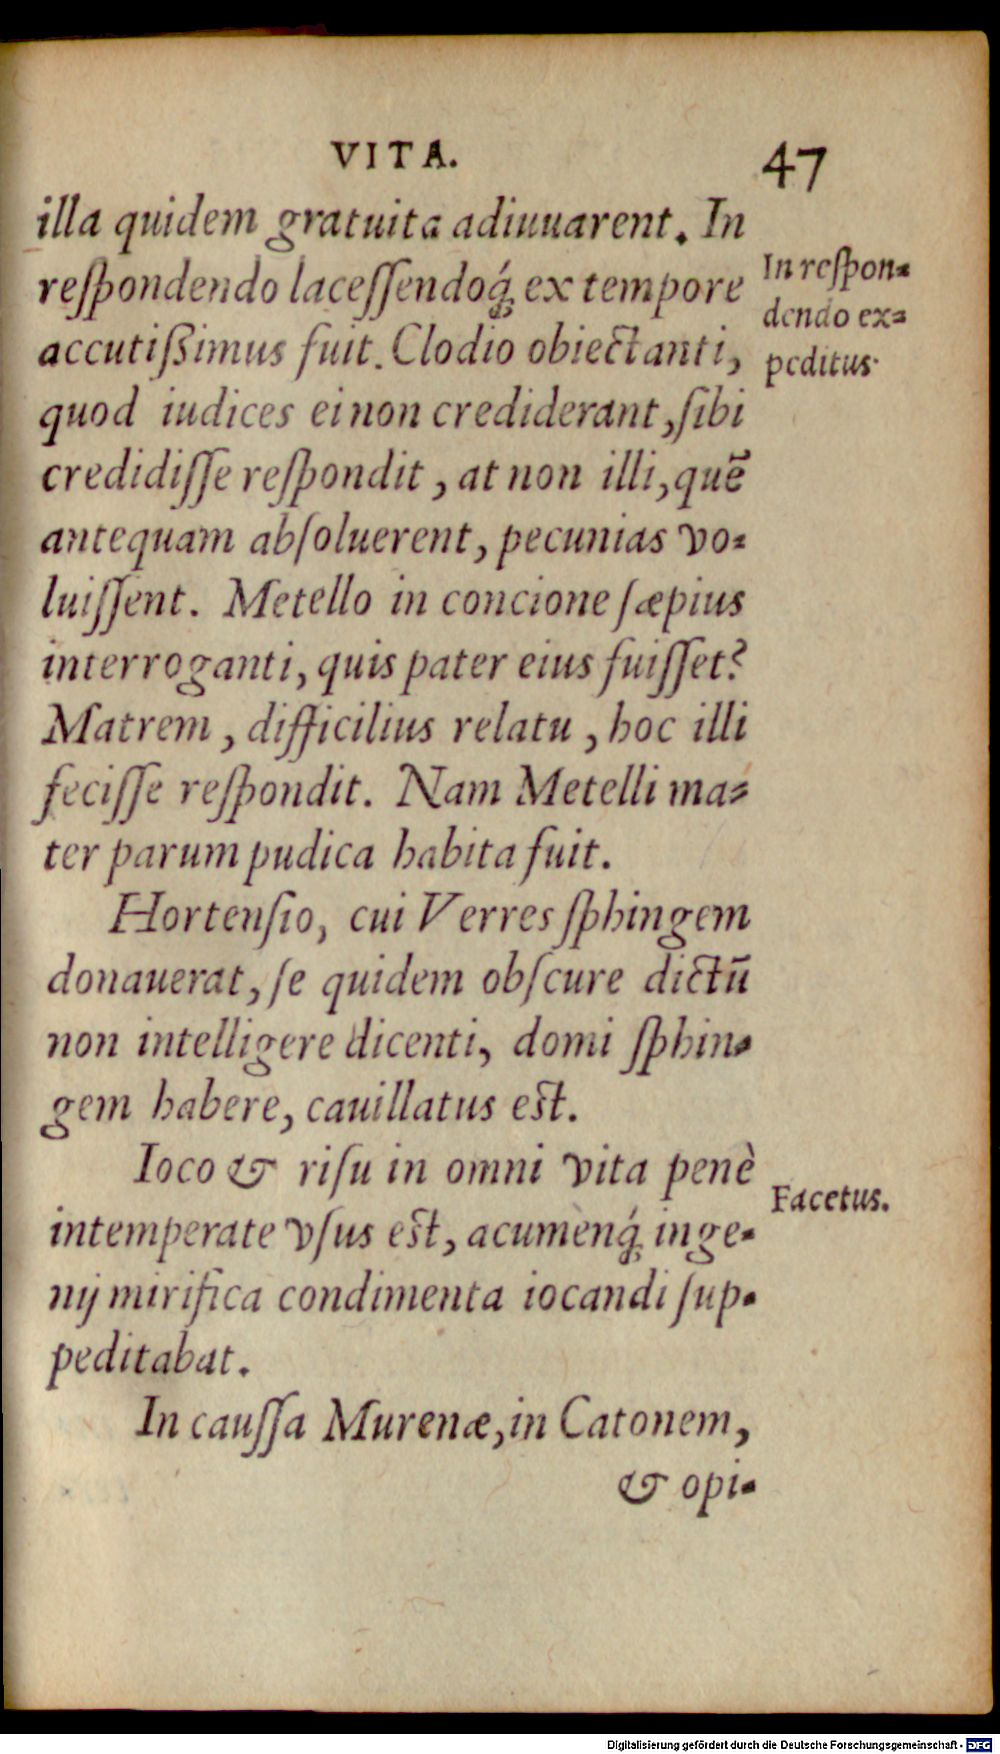 VITA. 47
illa quidem gratuita adiuuarent. In
reſpondendo laceſſendoq́; ex tempore
accutiſsimus fuit. Clodio obiectanti,
quod iudices ei non crediderant, ſibi
credidiſſe reſpondit, at non illi, quē
antequam abſoluerent, pecunias vo-
luiſſent. Metello in concione ſæpius
interroganti, quis pater eius fuiſſet?
Matrem, difficilius relatu, hoc illi
feciſſe reſpondit. Nam Metelli ma-
ter parum pudica habita fuit.
Hortenſio, cui Verres ſphingem
donauerat, ſe quidem obſcure dictū
non intelligere dicenti, domi ſphin-
gem habere, cauillatus est.
Ioco & riſu in omni vita penè
intemperate vſus est, acumènq́; inge-
nij mirifica condimenta iocandi ſup-
peditabat.
In cauſſa Murenæ, in Catonem,
& opi-
In reſpon-
dendo ex-
peditus.
Facetus.
Digitalisierung gefördert durch die Deutsche Forschungsgemeinschaft - DFG